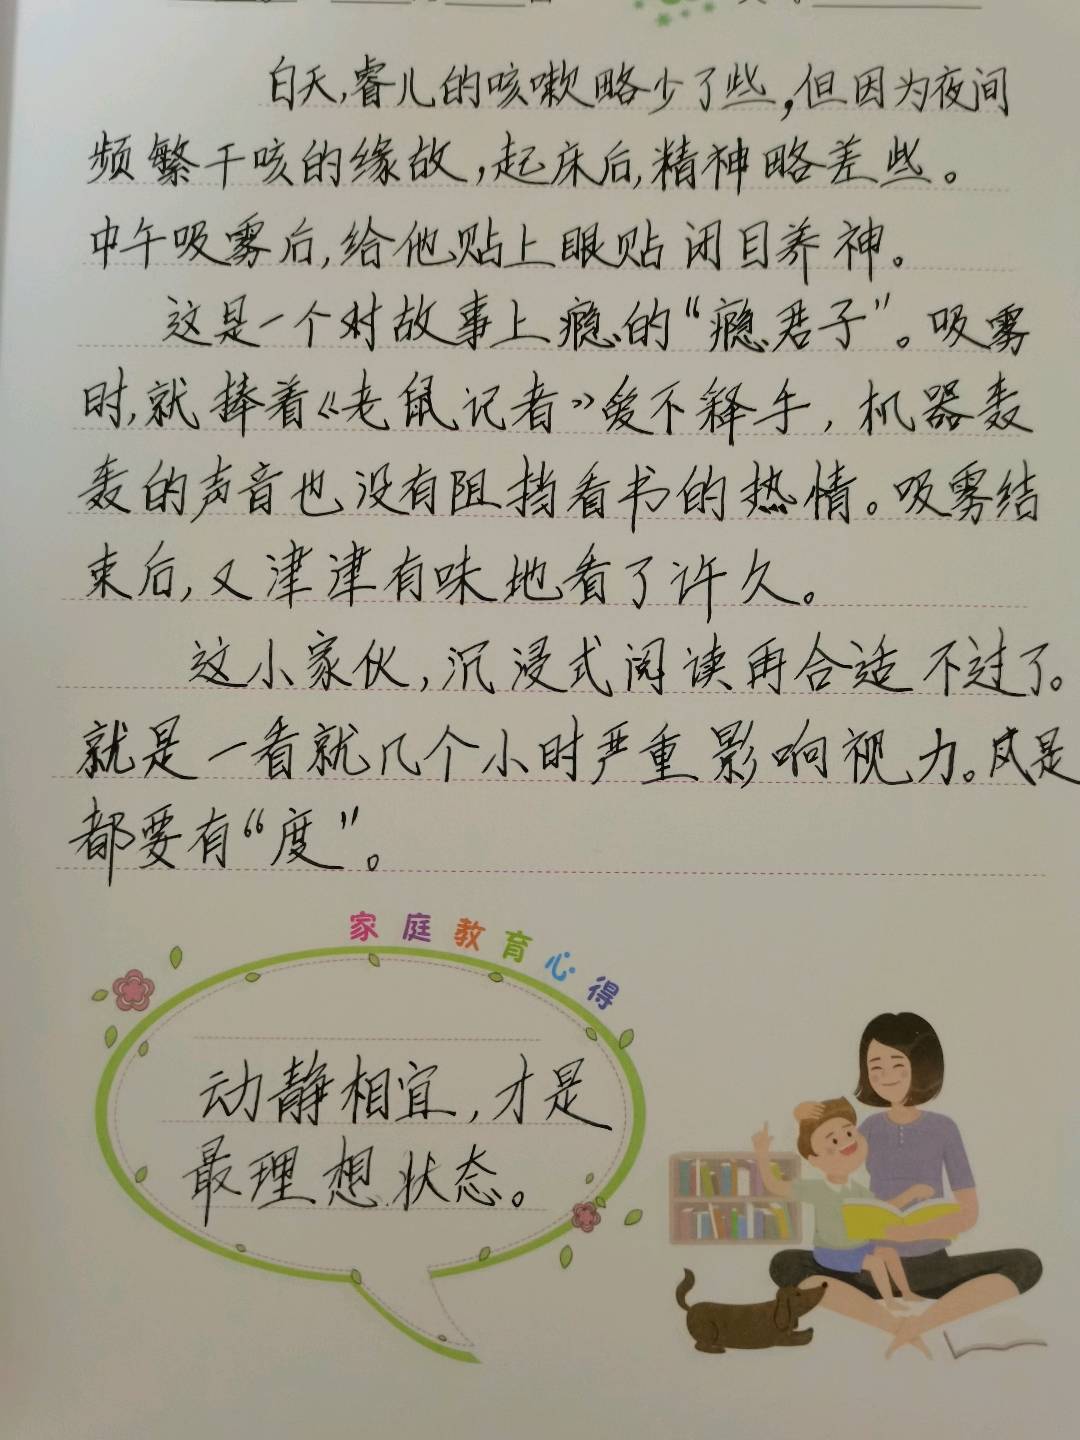 白天,睿儿的咳嗽略少了些,但因为夜间
频繁干咳的缘故,起床后,精神略差些。
中午吸雾后,给他贴上眼贴闭目养神。
这是一个对故事上瘾的“瘾君子”。吸雾
时,就捧着《老鼠记者》爱不释手,机器轰
轰的声音也没有阻挡看书的热情。吸雾结
束后,又津津有味地看了许久。
这小家伙,沉浸式阅读再合适不过了。
就是一看就几个小时严重影响视力。凡是
都要有“度”。
家庭教育心得
动静相宜,才是
最理想状态。